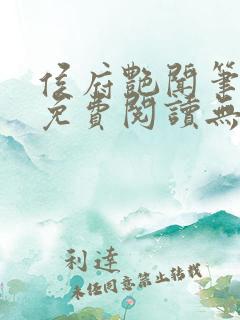 侯府艷聞筆
免費閱讀無
利達
未經同意禁止轉載